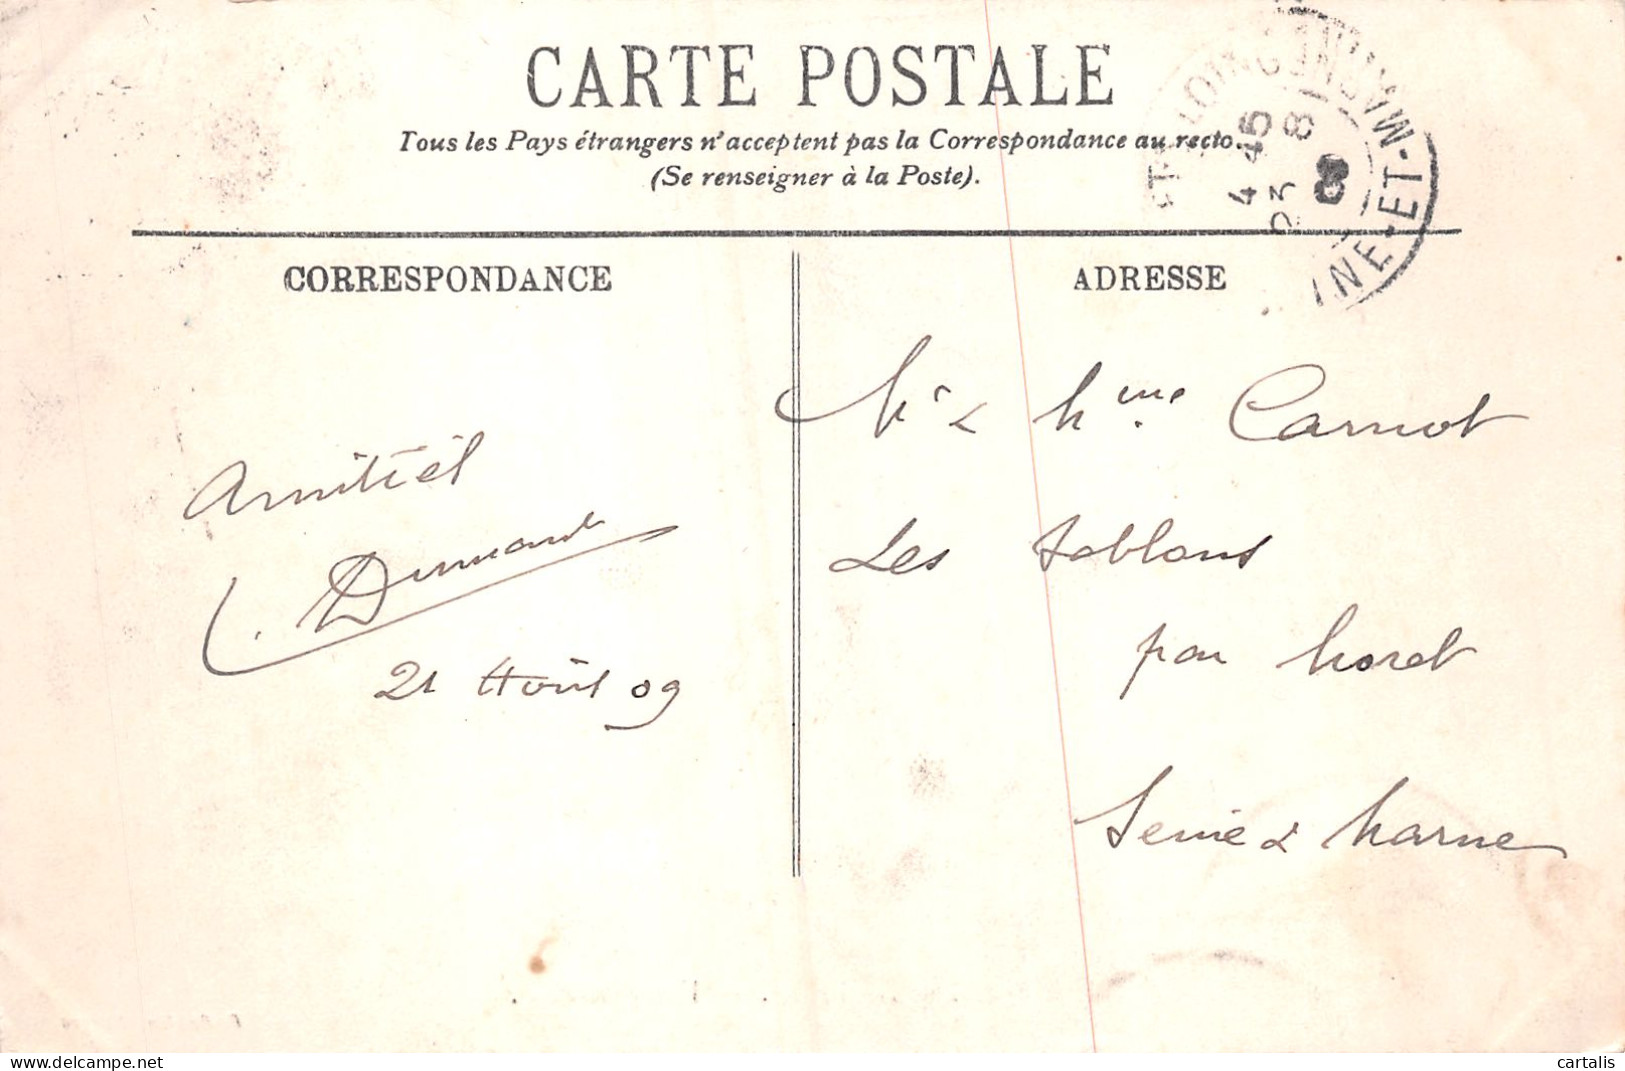 CARTE POSTALE
Tous les Pays étrangers n'acceptent pas la Correspondance au recto.
(Se renseigner à la Poste).
4 45
23 8
09
NE-ET-MA
CORRESPONDANCE
ADRESSE
Mr & Mme Carnot
Les Sablons
par Moret
Seine & Marne
Amitiés
21 Août 09
cartalis